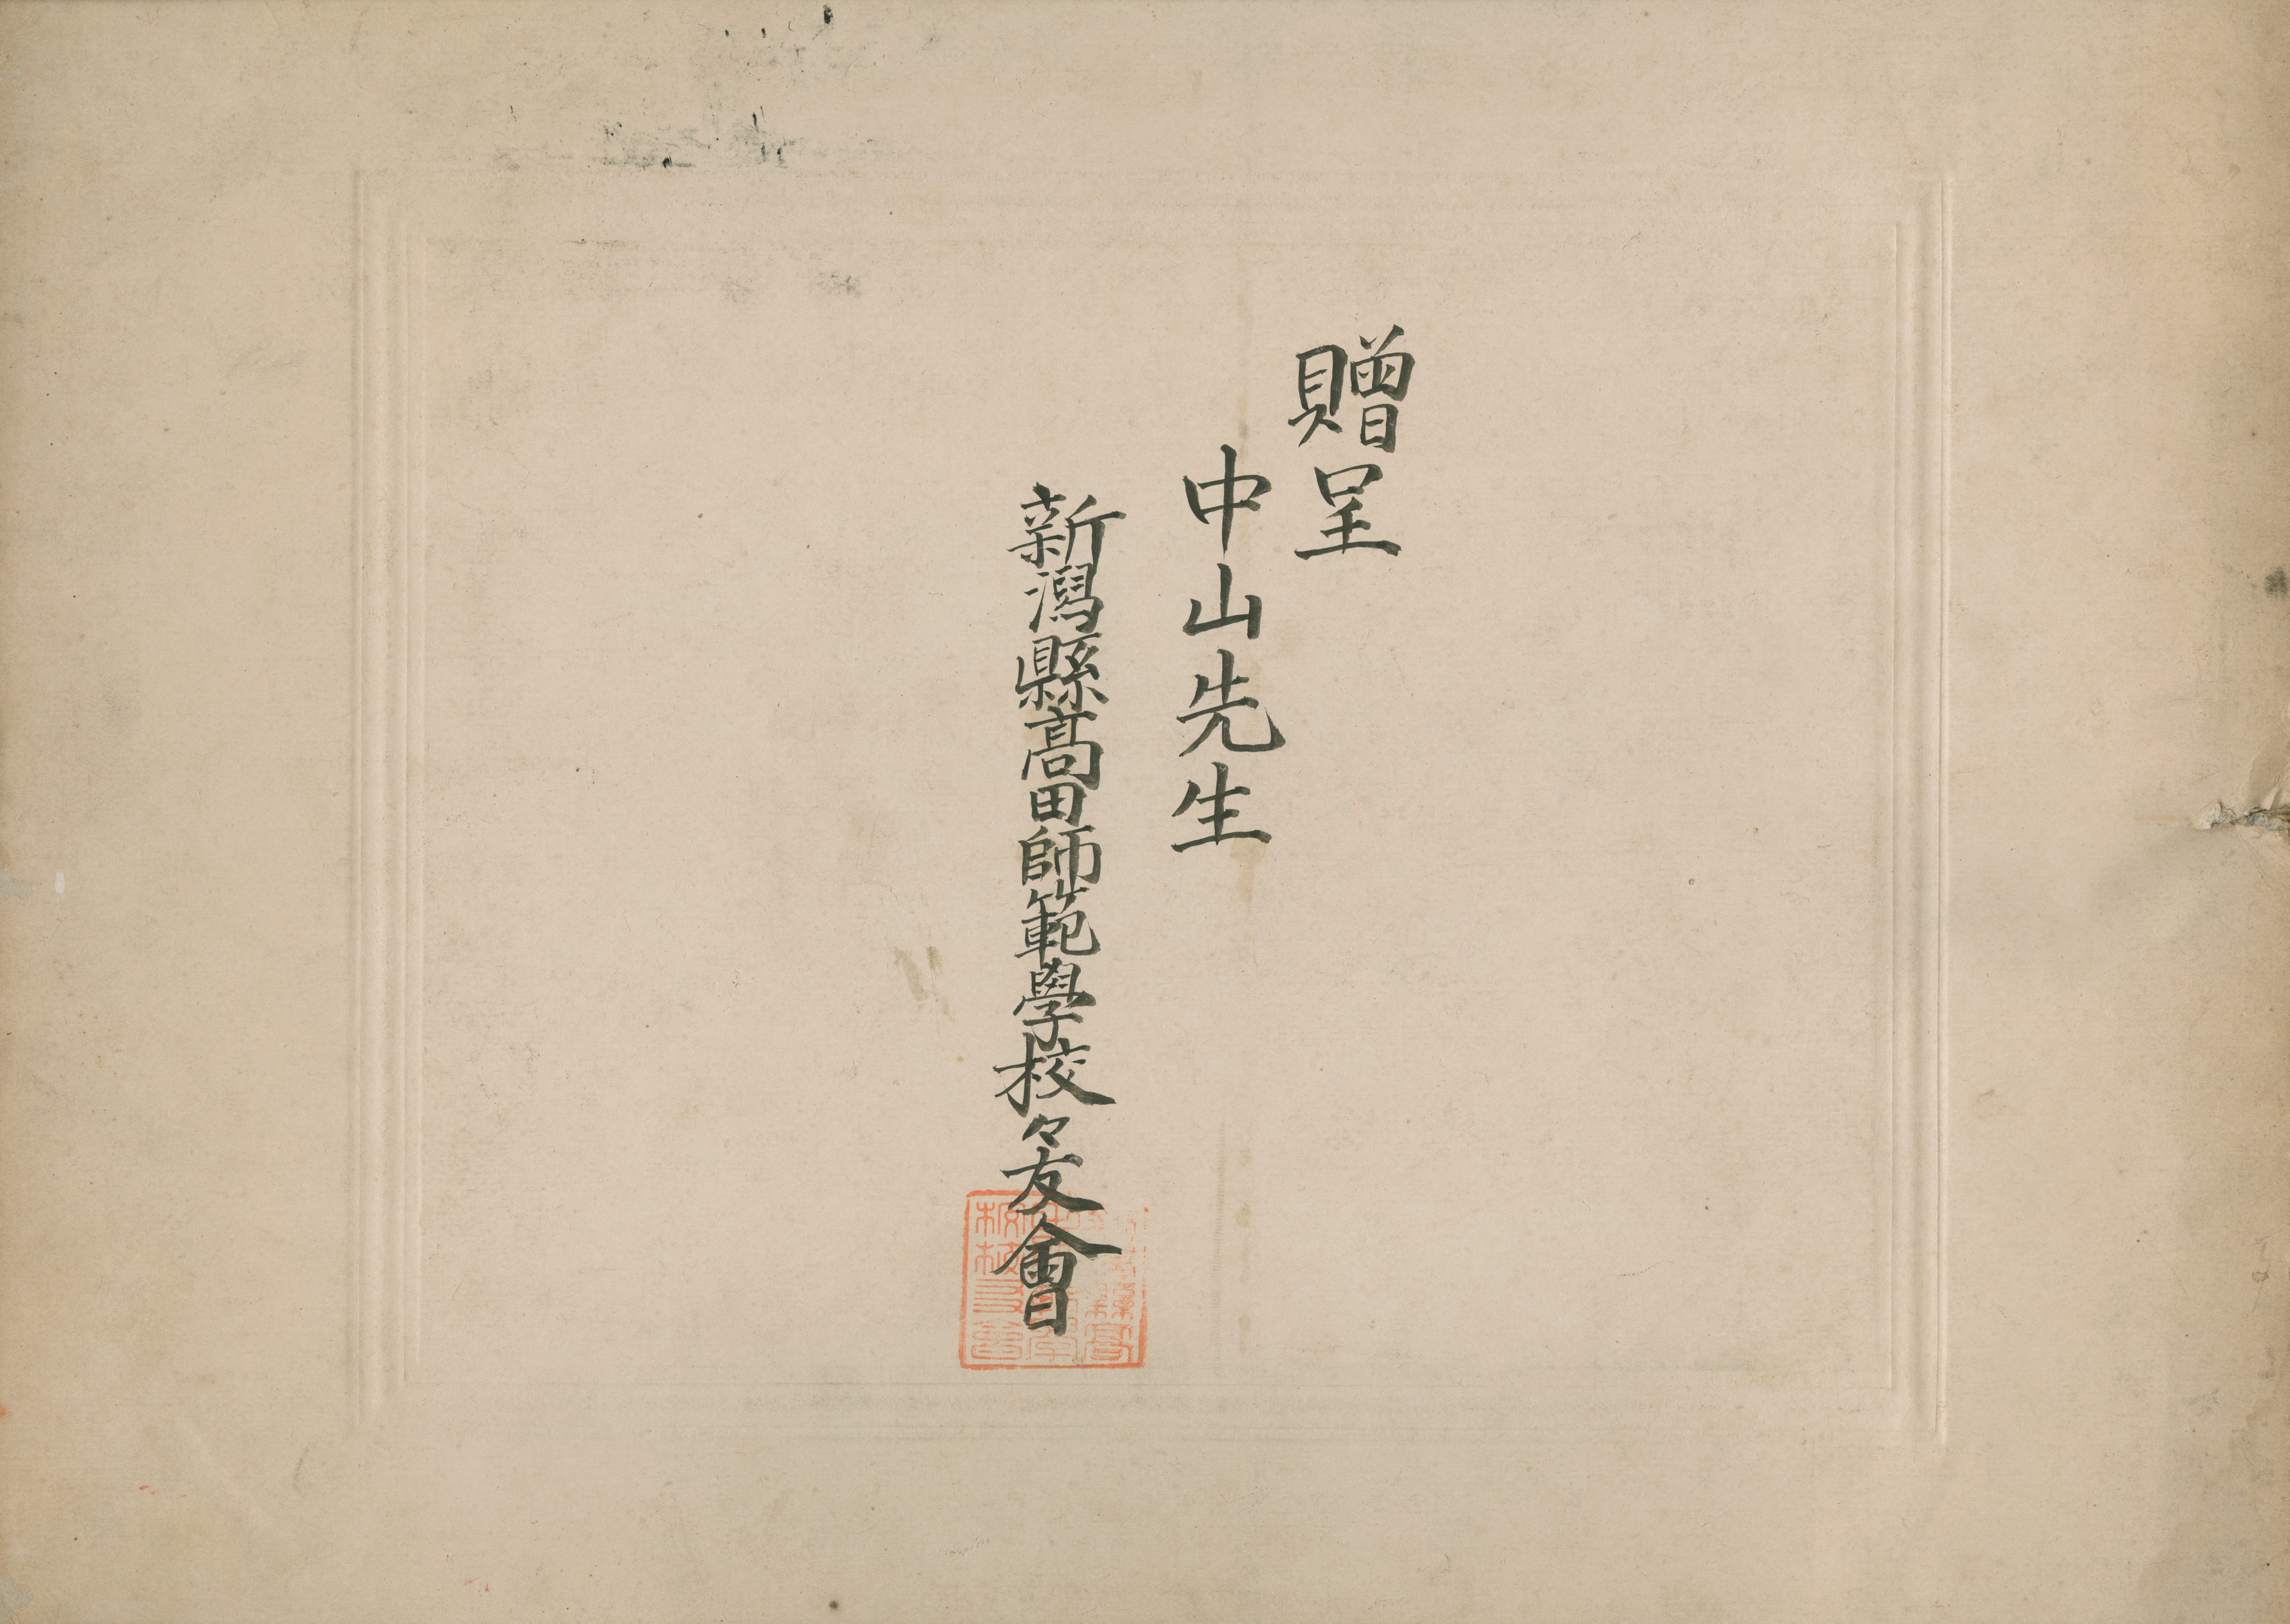 贈呈
中山先生
新潟縣髙田師範學校々友會